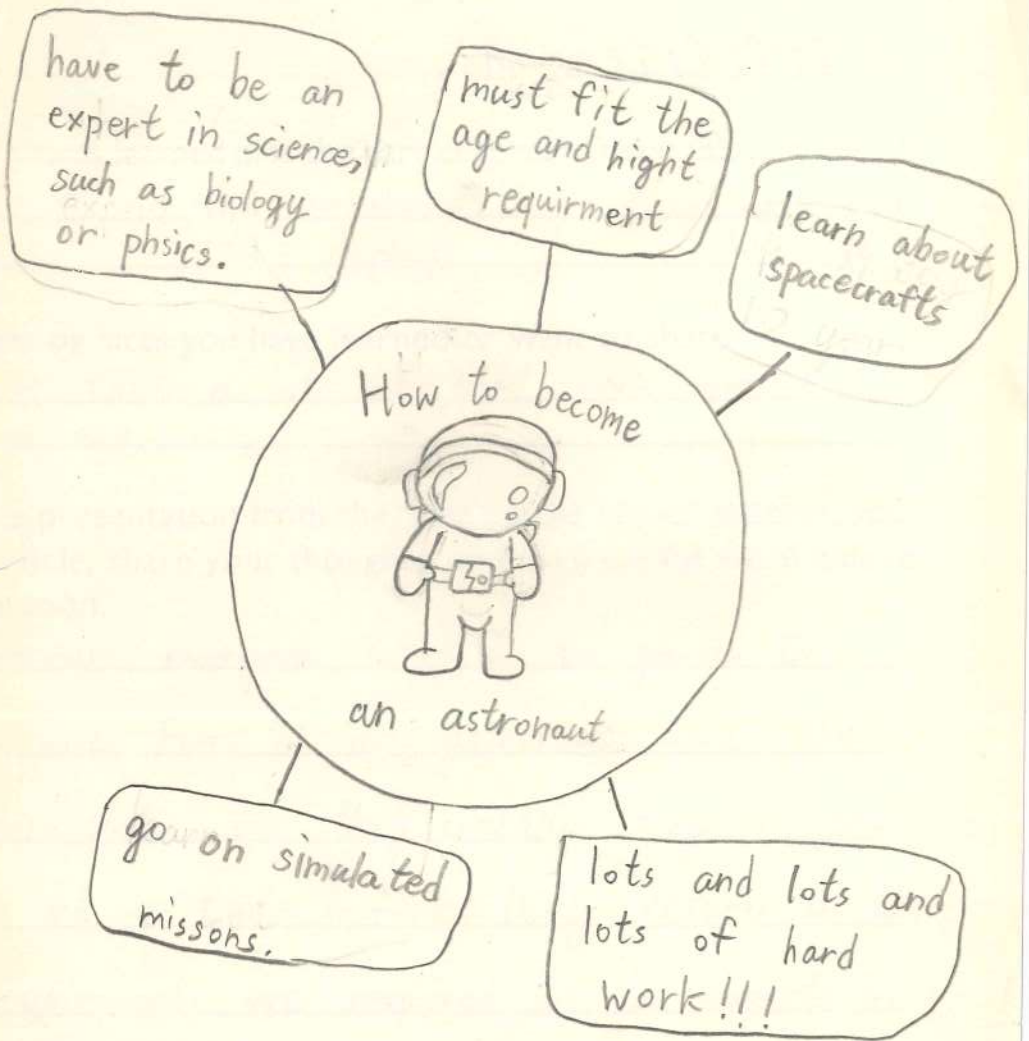 have to be an
expert in science,
such as biology
or phsics.
must fit the
age and hight
requirment
learn about
spacecrafts
How to become
an astronaut
go on simulated
missons.
lots and lots and
lots of hard
work!!!